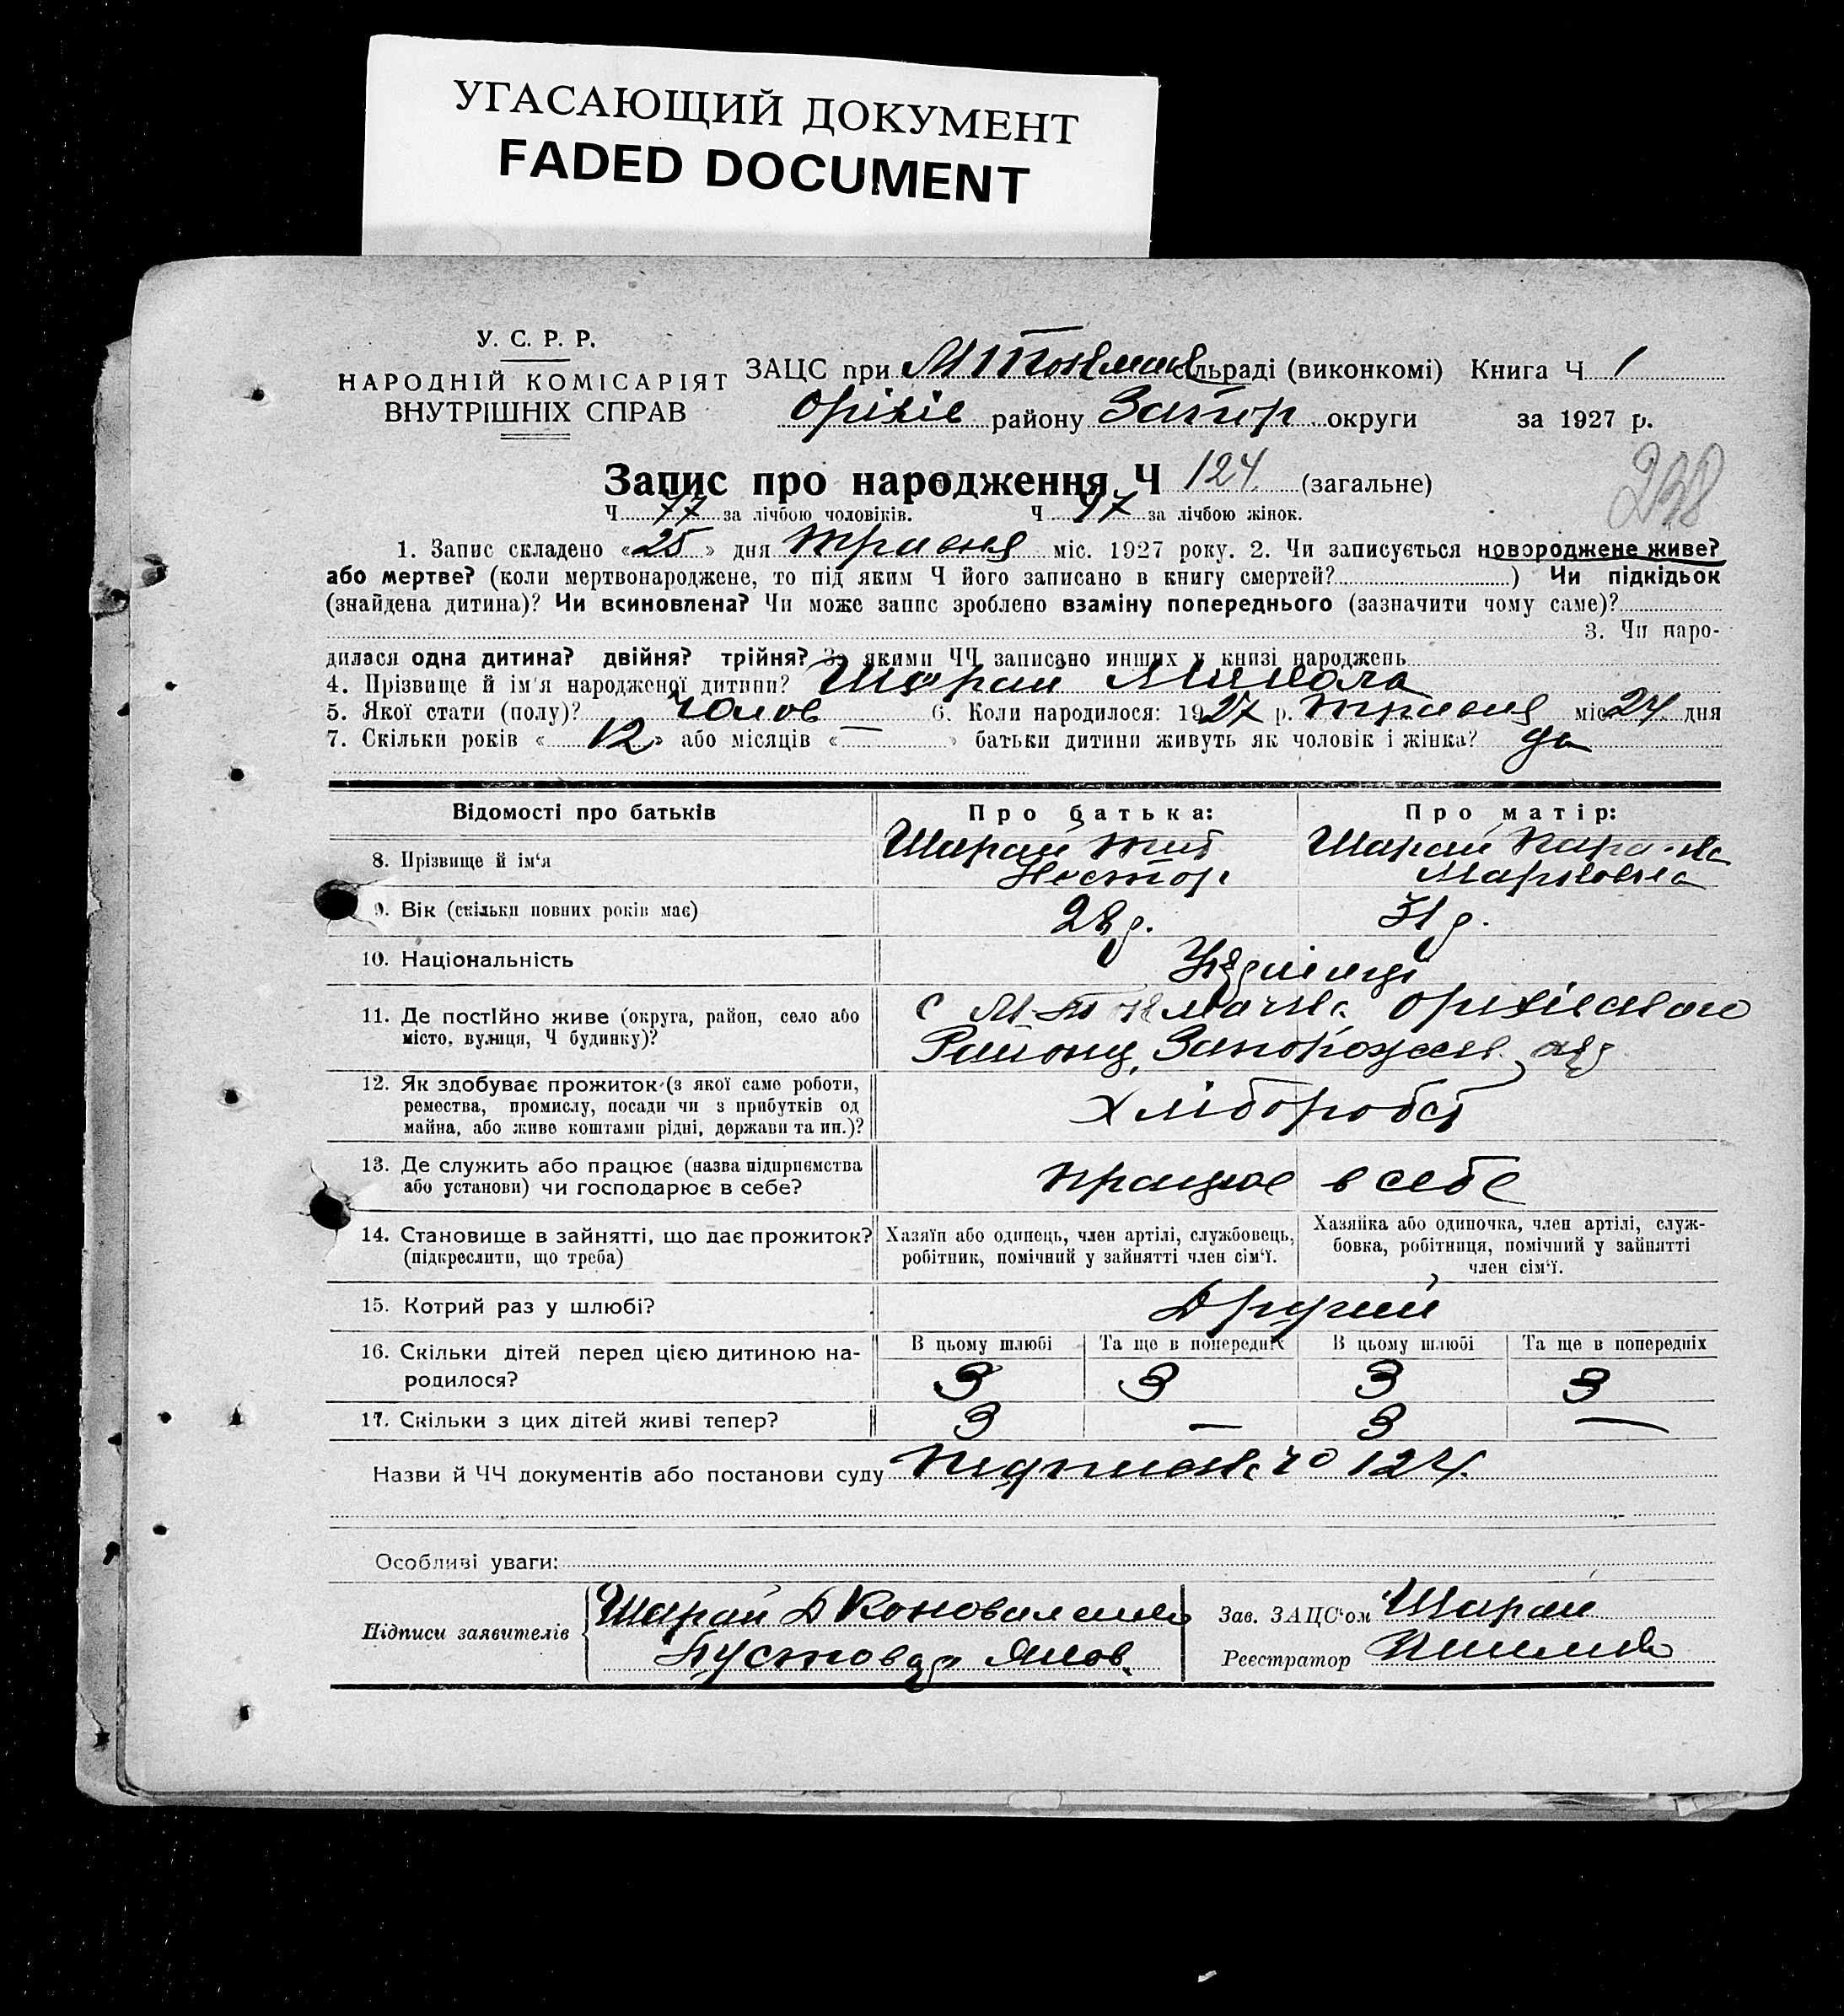 УГАСАЮЩИЙ ДОКУМЕНТ
FADED DOCUMENT
У. С. Р. Р.
НАРОДНІЙ КОМІСАРІЯТ
ВНУТРІШНІХ СПРАВ
ЗАЦС при М Токмац сільраді (виконкомі) Книга Ч 1
Оріхів району Запор округи за 1927 р.
238
Запис про народження Ч 124 (загальне)
Ч 77 за лічбою чоловіків. Ч 47 за лічбою жінок.
1. Запис складено «25» дня травня міс. 1927 року. 2. Чи записується новороджене живе?
або мертве? (коли мертвонароджене, то під яким Ч його записано в книгу смертей?) Чи підкідьок
(знайдена дитина)? Чи всиновлена? Чи може запис зроблено взаміну попереднього (зазначити чому саме)?
3. Чи наро-
дилася одна дитина? двійня? трійня? За якими ЧЧ записано инших у книзі народжень
4. Прізвище й ім'я народженої дитини? Шарай Микола
5. Якої стати (полу)? чолов 6. Коли народилося: 1927 р. травня міс. 24 дня
7. Скільки років «12» або місяців «—» батьки дитини живуть як чоловік і жінка? да
Відомості про батьків
Про батька:
Про матір:
8. Прізвище й ім'я
Шарай Тит
Нестор
Шарай
Марковна
9. Вік (скільки повних років має)
28 р.
31 р.
10. Національність
Українці
11. Де постійно живе (округа, район, село або
місто, вулиця, Ч будинку)?
с М-Токмачка Оріхівского
Району, Запорожск.
12. Як здобуває прожиток (з якої саме роботи,
ремества, промислу, посади чи з прибутків од
майна, або живе коштами рідні, держави та ин.)?
хлібороби
13. Де служить або працює (назва підприємства
або установи) чи господарює в себе?
працює в себе
14. Становище в зайнятті, що дає прожиток?
(підкреслити, що треба)
Хазяїн або одинець, член артілі, службовець,
робітник, помічний у зайнятті член сім'ї.
Хазяйка або одиночка, член артілі, служ-
бовка, робітниця, помічний у зайнятті
член сім'ї.
15. Котрий раз у шлюбі?
Другий
16. Скільки дітей перед цією дитиною на-
родилося?
В цьому шлюбі
Та ще в попередніх
В цьому шлюбі
Та ще в попередніх
3
3
3
3
17. Скільки з цих дітей живі тепер?
3
—
3
—
Назви й ЧЧ документів або постанови суду 124.
Особливі уваги:
Підписи заявителів
Шарай Д Коноваленко
Пустовар Яков.
Зав. ЗАЦС'ом Шарай
Реєстратор